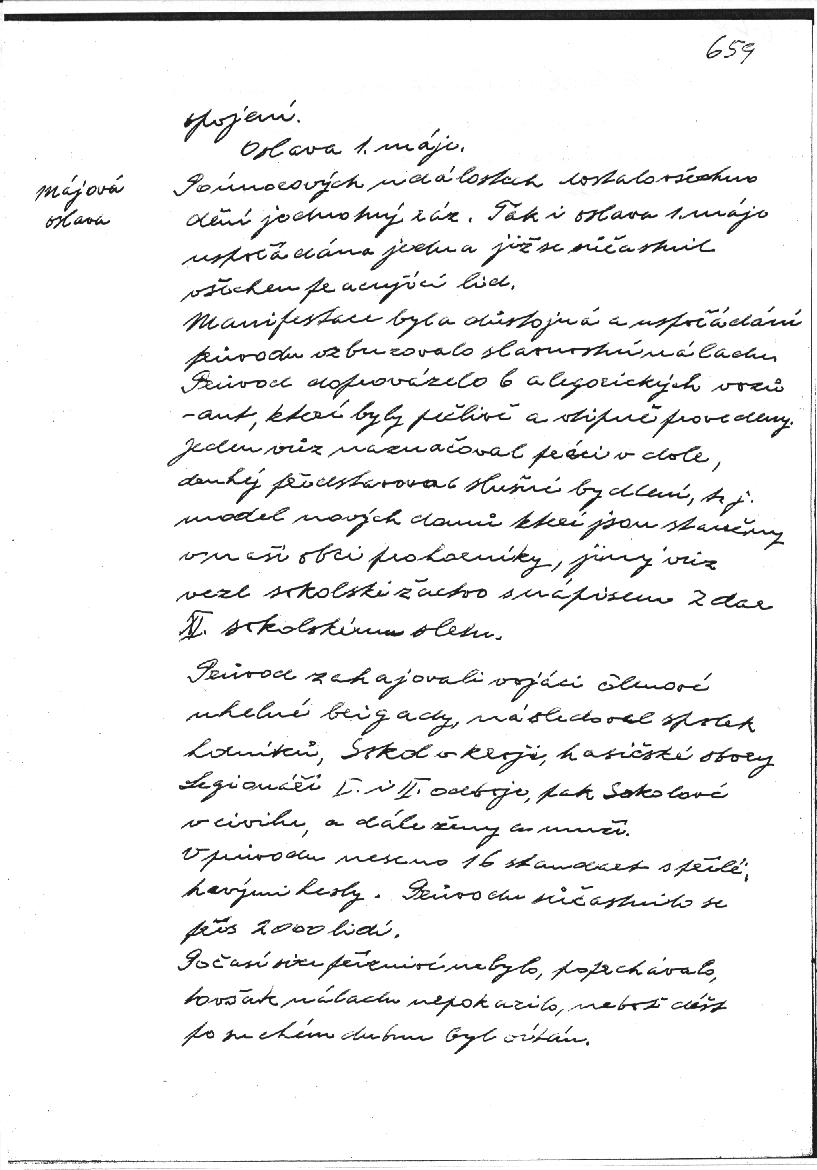 659
spojení.
Oslava 1. máje.
Májová
oslava
Po únorových událostech dostalo všechno
dění jednotný ráz. Tak i oslava 1. máje
uspořádána jedna již se súčastnil
všechen pracující lid.
Manifestace byla důstojná a uspořádání
průvodu vzbuzovalo slavnostní náladu
Průvod doprovázelo 6 alegorických vozů
-aut, které byly pečlivě a vtipně provedeny.
Jeden vůz naznačoval práci v dole,
druhý představoval slušné bydlení, t. j.
model nových domů které jsou stavěny
v naší obci pro horníky, jiný vůz
vezl sokolské žactvo s nápisem Zdar
XI. sokolskému sletu.
Průvod zahajovali vojáci členové
uhelné brigady, následoval spolek
horníků, Sokol v kroji, hasičské sbory
Legionáři I. i II. odboje, pak Sokolové
v civilu, a dále ženy a muži.
V průvodu neseno 16 standart s přilé-
havými hesly. Průvodu súčastnilo se
přes 2000 lidí.
Počasí sice příznivé nebylo, poprchávalo,
to však náladu nepokazilo, neboť déšť
po suchém dubnu byl vítán.